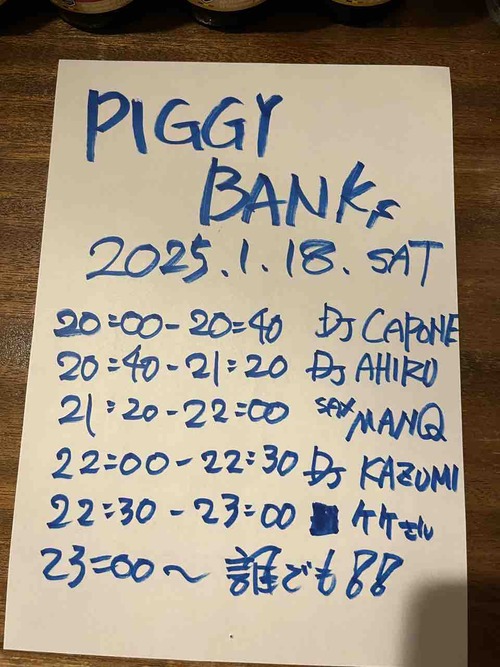 PIGGY
BANKs
2025.1.18.SAT
20:00-20:40 DJ CAPONE
20:40-21:20 DJ AHIRO
21:20-22:00 SAX MANQ
22:00-22:30 DJ KAZUMI
22:30-23:00 ケケさん
23:00〜 誰でも!!